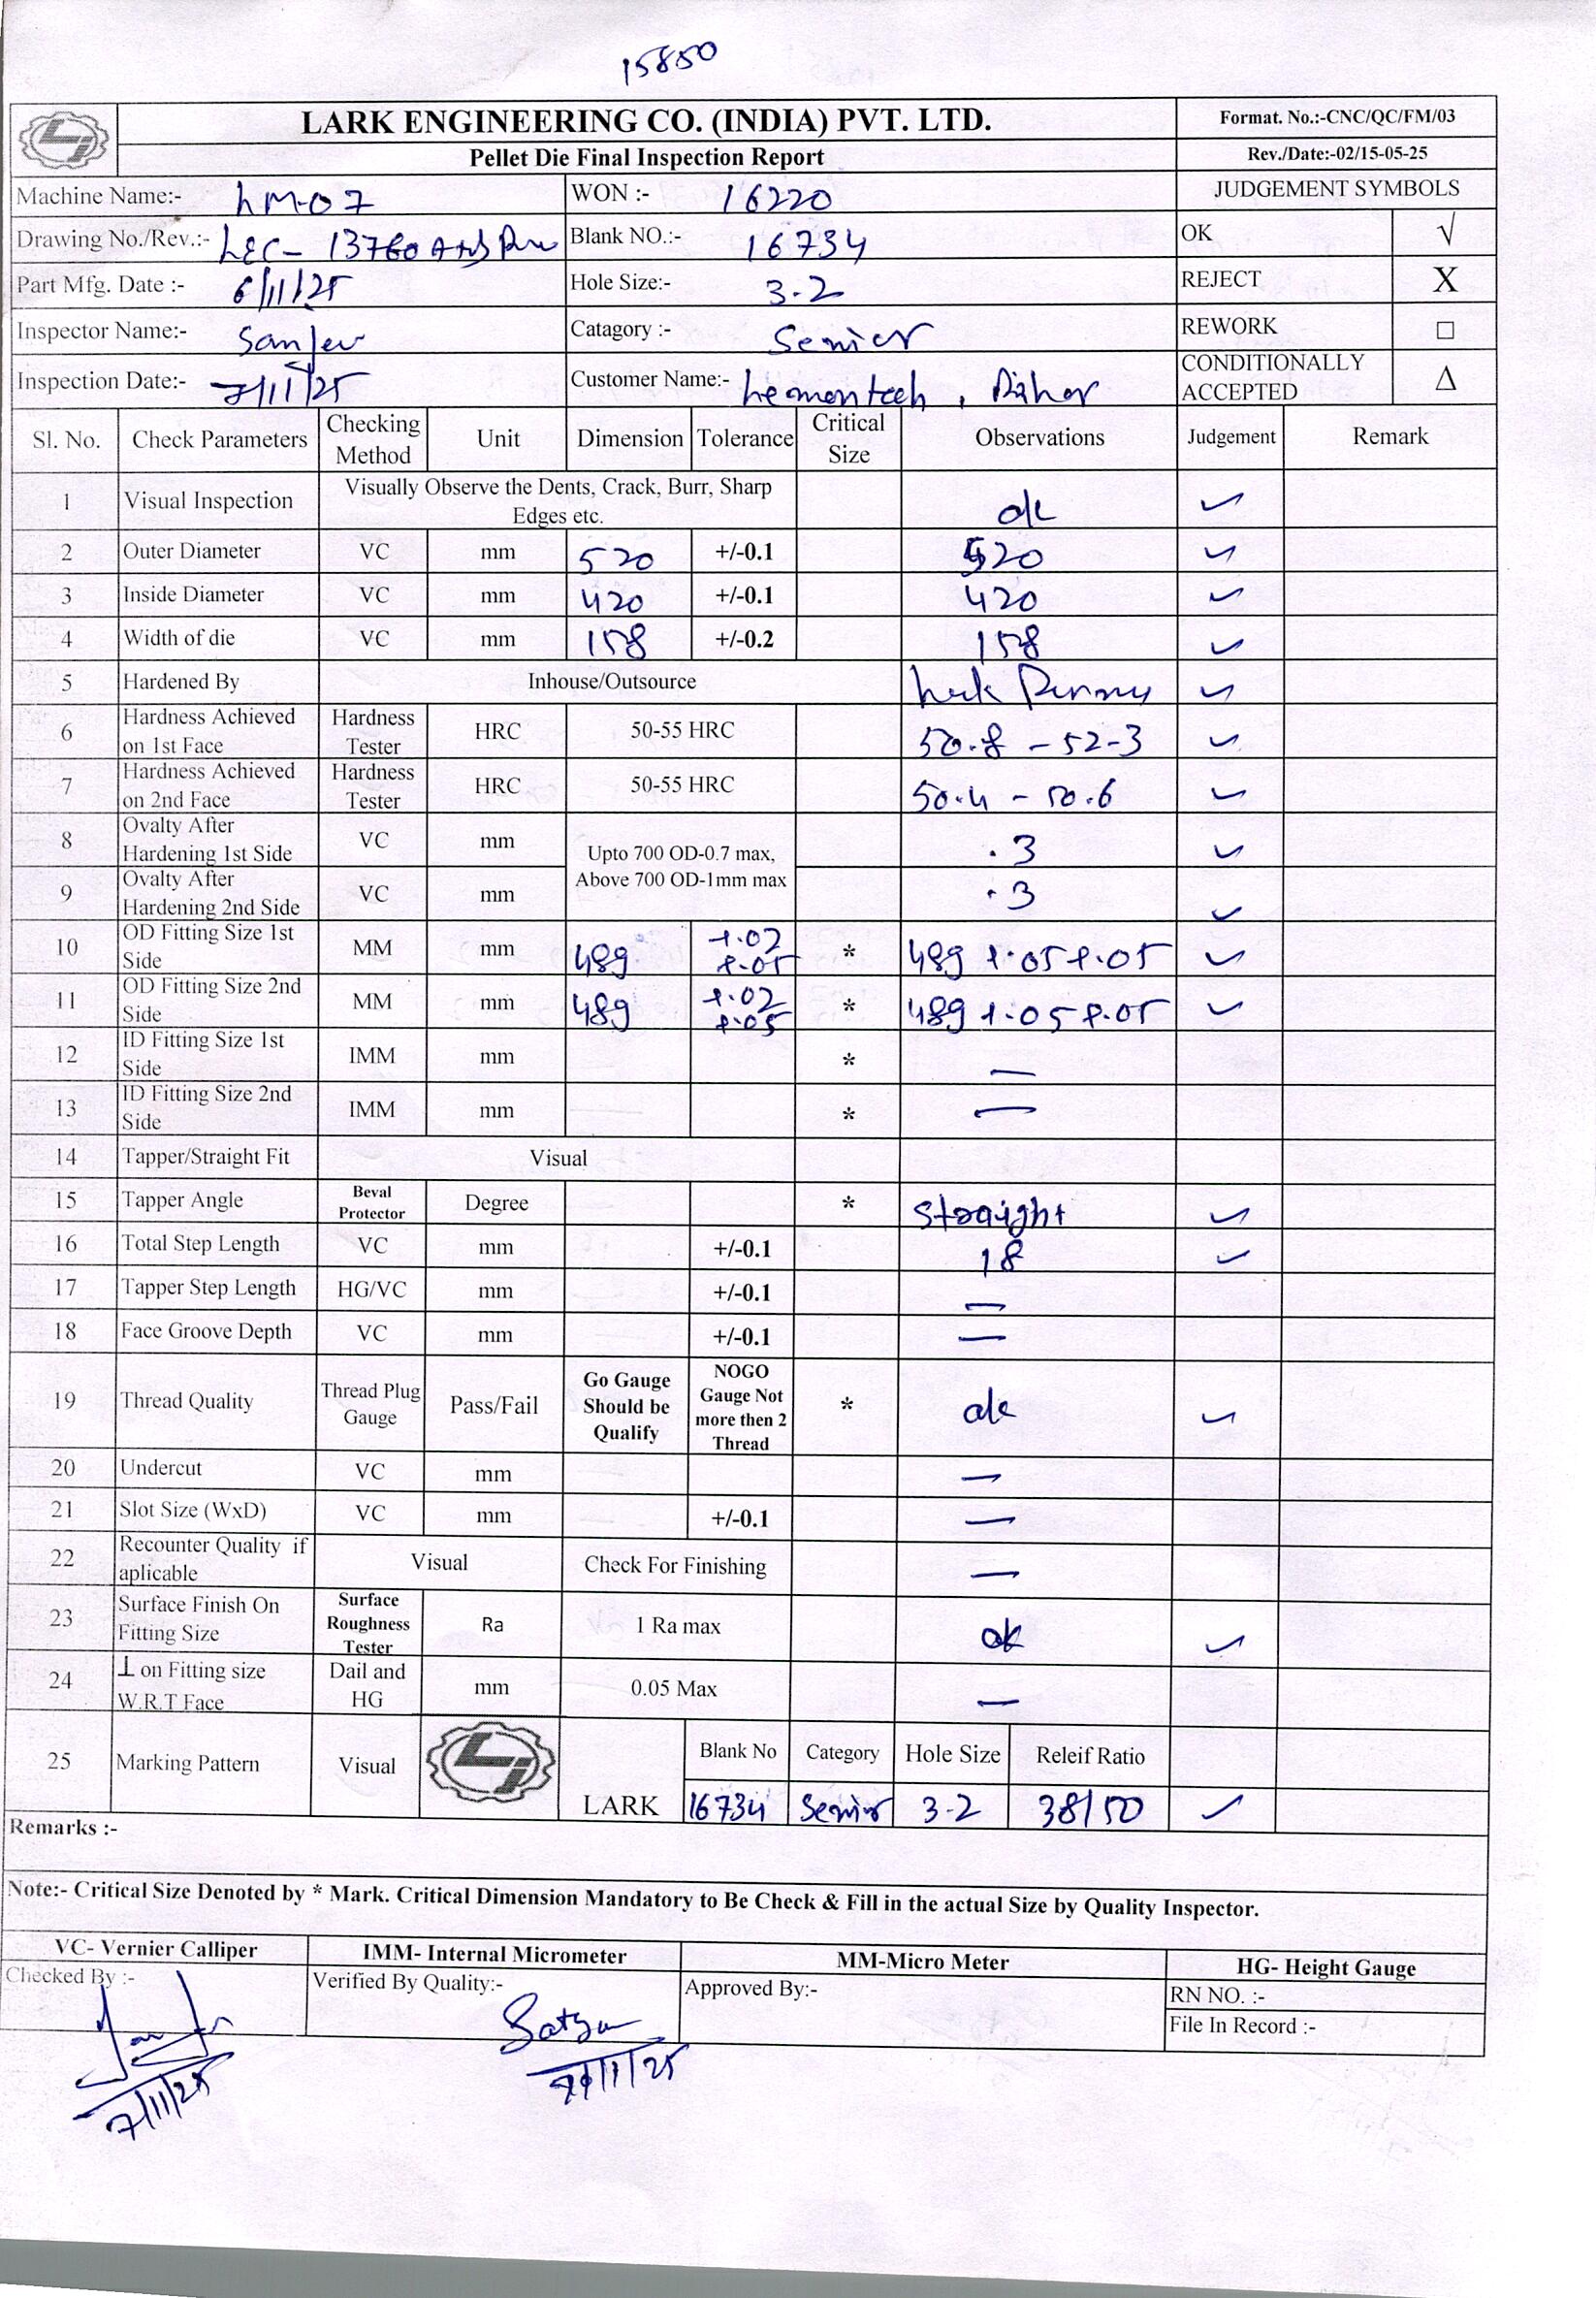 15850
LARK ENGINEERING CO. (INDIA) PVT. LTD.
Format. No.:-CNC/QC/FM/03
Pellet Die Final Inspection Report
Rev./Date:-02/15-05-25
Machine Name:- LM-07 WON :- 16220 JUDGEMENT SYMBOLS
Drawing No./Rev.:- LEC- 13760 Blank NO.:- 16734 OK √
Part Mfg. Date :- 6/11/25 Hole Size:- 3.2 REJECT X
Inspector Name:- Sanjev Catagory :- Senior REWORK □
Inspection Date:- 7/11/25 Customer Name:- Lemontech, CONDITIONALLY ACCEPTED Δ
Sl. No. Check Parameters Checking Method Unit Dimension Tolerance Critical Size Observations Judgement Remark
1 Visual Inspection Visually Observe the Dents, Crack, Burr, Sharp Edges etc. ok ✓
2 Outer Diameter VC mm 520 +/-0.1 520 ✓
3 Inside Diameter VC mm 420 +/-0.1 420 ✓
4 Width of die VC mm 158 +/-0.2 158 ✓
5 Hardened By Inhouse/Outsource ✓
6 Hardness Achieved on 1st Face Hardness Tester HRC 50-55 HRC 50.8 - 52-3 ✓
7 Hardness Achieved on 2nd Face Hardness Tester HRC 50-55 HRC 50.4 - 50.6 ✓
8 Ovalty After Hardening 1st Side VC mm Upto 700 OD-0.7 max, Above 700 OD-1mm max .3 ✓
9 Ovalty After Hardening 2nd Side VC mm .3 ✓
10 OD Fitting Size 1st Side MM mm 489 +.02 +.05 * 489 +.05 +.05 ✓
11 OD Fitting Size 2nd Side MM mm 489 +.02 +.05 * 489 +.05 +.05 ✓
12 ID Fitting Size 1st Side IMM mm * —
13 ID Fitting Size 2nd Side IMM mm * —
14 Tapper/Straight Fit Visual
15 Tapper Angle Beval Protector Degree * Straight ✓
16 Total Step Length VC mm +/-0.1 18 ✓
17 Tapper Step Length HG/VC mm +/-0.1 —
18 Face Groove Depth VC mm +/-0.1 —
19 Thread Quality Thread Plug Gauge Pass/Fail Go Gauge Should be Qualify NOGO Gauge Not more then 2 Thread * ok ✓
20 Undercut VC mm —
21 Slot Size (WxD) VC mm +/-0.1 —
22 Recounter Quality if aplicable Visual Check For Finishing —
23 Surface Finish On Fitting Size Surface Roughness Tester Ra 1 Ra max ok ✓
24 ⊥ on Fitting size W.R.T Face Dail and HG mm 0.05 Max —
25 Marking Pattern Visual LARK Blank No Category Hole Size Releif Ratio
16734 Senior 3-2 38/50 ✓
Remarks :-
Note:- Critical Size Denoted by * Mark. Critical Dimension Mandatory to Be Check & Fill in the actual Size by Quality Inspector.
VC- Vernier Calliper IMM- Internal Micrometer MM-Micro Meter HG- Height Gauge
Checked By :- Verified By Quality:- Approved By:- RN NO. :-
File In Record :-
Satya
7/11/25